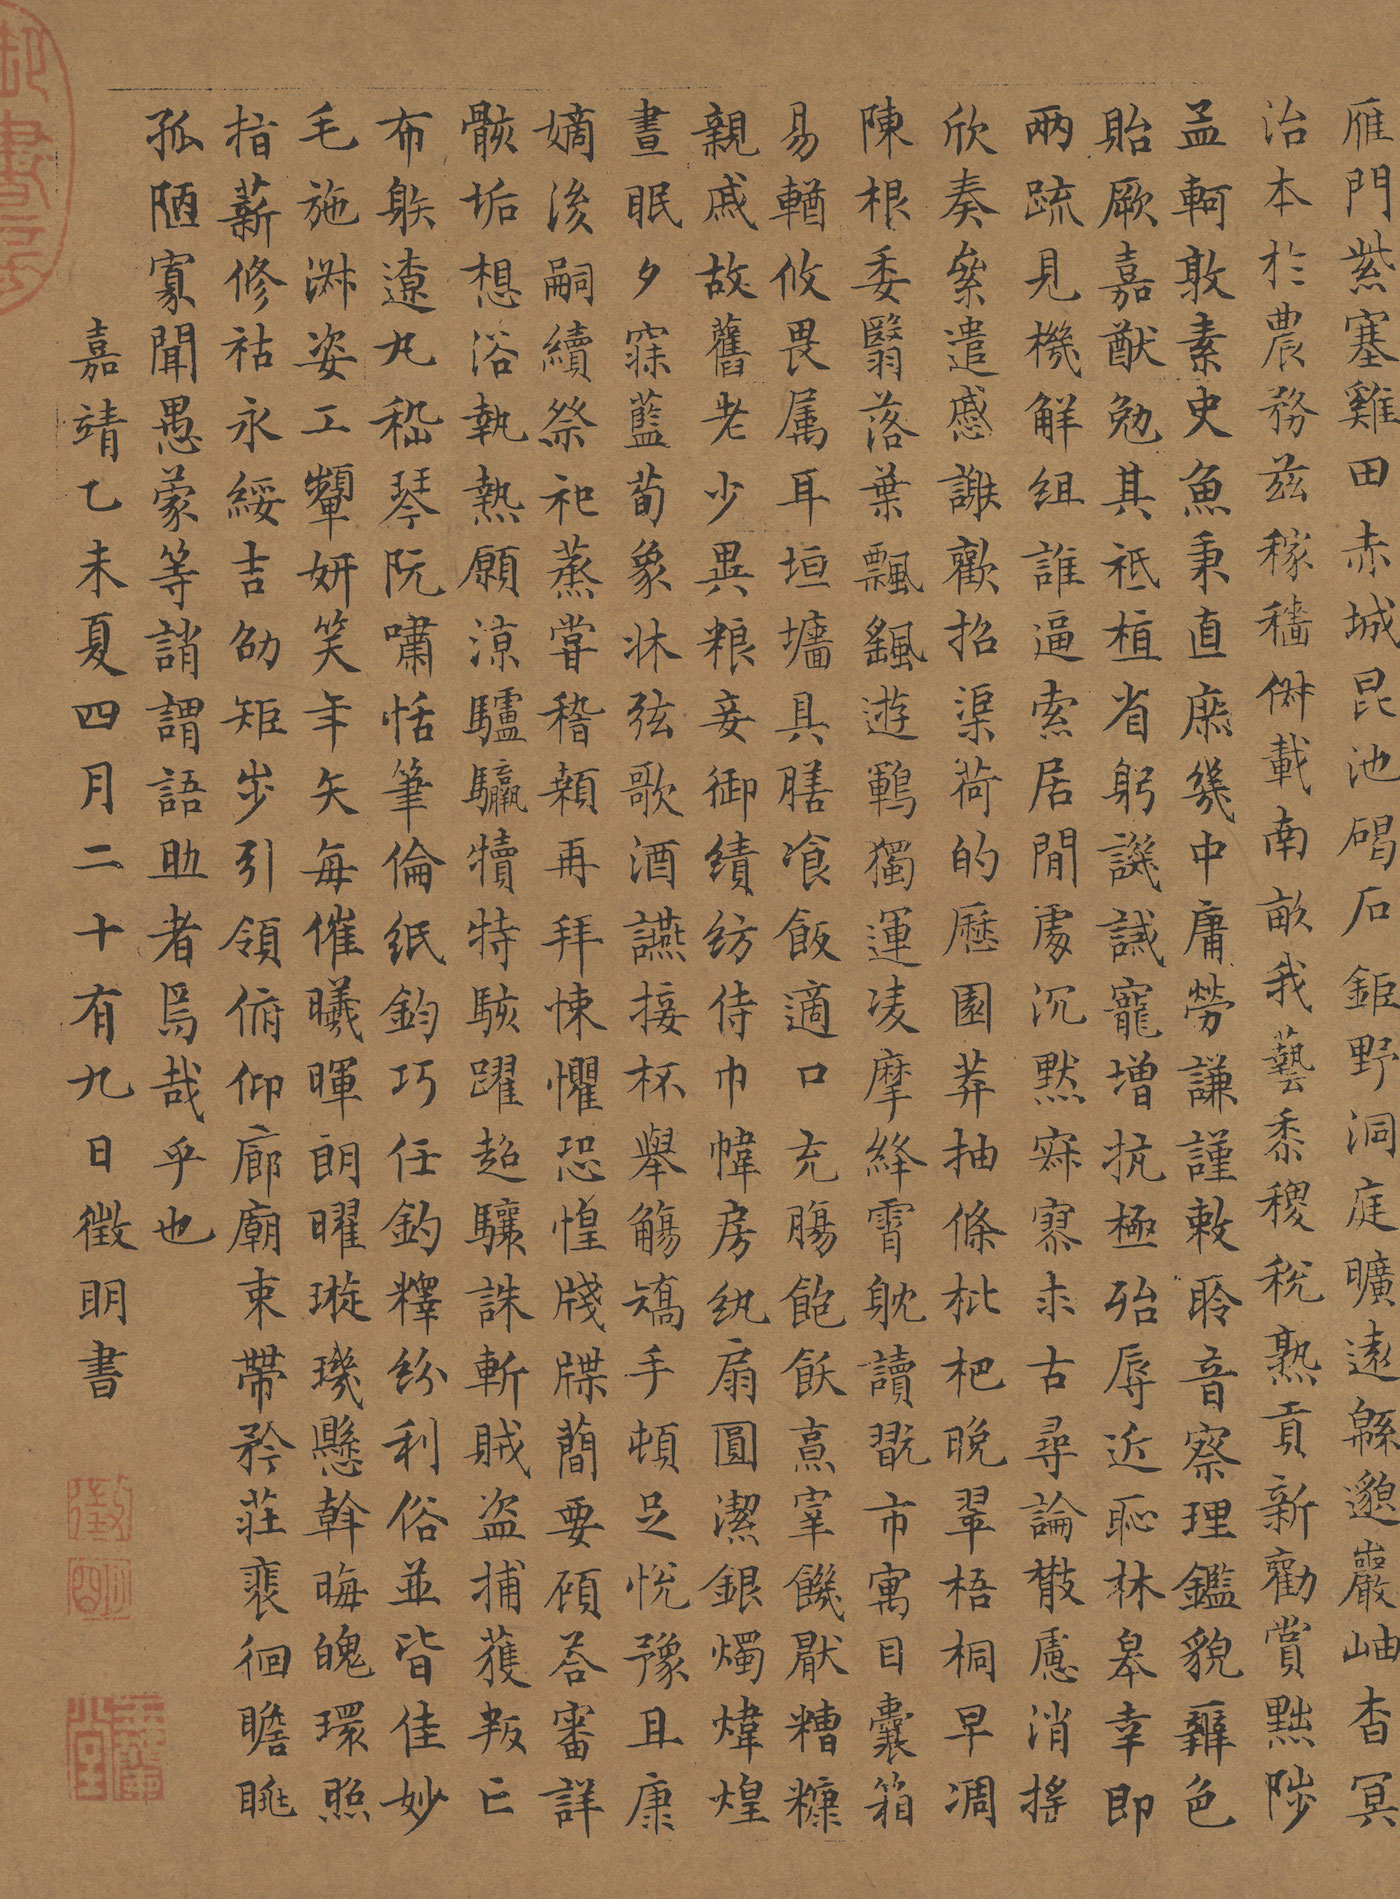 雁門紫塞雞田赤城昆池碣石鉅野洞庭曠遠緜邈巖岫杳冥
治本於農務茲稼穡俶載南畝我藝黍稷稅熟貢新勸賞黜陟
孟軻敦素史魚秉直庶幾中庸勞謙謹敕聆音察理鑑貌辨色
貽厥嘉猷勉其祗植省躬譏誡寵增抗極殆辱近恥林皋幸即
兩疏見機解組誰逼索居閒處沉默寂寥求古尋論散慮逍搖
欣奏纍遣慼謝歡招渠荷的歷園莽抽條枇杷晚翠梧桐早凋
陳根委翳落葉飄颻遊鵾獨運凌摩絳霄耽讀翫市寓目囊箱
易輶攸畏属耳垣墻具膳飡飯適口充腸飽飫烹宰饑厭糟糠
親戚故舊老少異粮妾御績紡侍巾幃房紈扇圓潔銀燭煒煌
晝眠夕寐藍荀象牀弦歌酒讌接杯舉觴矯手頓足悅豫且康
嫡後嗣續祭祀蒸嘗稽顙再拜悚懼恐惶牋牒簡要顧荅審詳
骸垢想浴執熱願涼驢騾犢特駭躍超驤誅斬賊盜捕獲叛亡
布躲遼丸嵇琴阮嘯恬筆倫紙鈞巧任釣釋紛利俗並皆佳妙
毛施淑姿工顰妍笑年矢每催曦暉朗曜璇璣懸斡晦魄環照
指薪修祜永綏吉劭矩步引領俯仰廊廟束帶矜莊裵徊瞻眺
孤陋寡聞愚蒙等誚謂語助者焉哉乎也
嘉靖乙未夏四月二十有九日徵明書
徵明